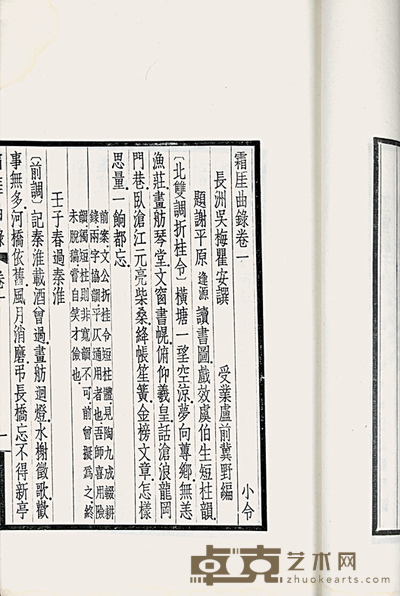 霜厓曲錄卷一
小令
長洲吳梅瞿安撰 受業盧前冀野編
題謝平原逢源讀書圖戲效虞伯生短柱韻
〔北雙調折桂令〕橫塘一望空涼夢向蓴鄉無恙
漁莊畫舫琴堂文窗書幌俯仰羲皇話滄浪龍岡
門巷臥滄江元亮柴桑絳帳笙簧金榜文章怎樣
思量一餉都忘
前案文公折桂令短柱體見陶九成輟耕
錄兩字協韻平仄通用者也吾師喜用險
韻獨短柱則非寬韻不可前曾擬爲之終
未脫稿當自笑才儉也
壬子春過秦淮
〔前調〕記秦淮載酒曾過畫舫迴燈水榭徵歌歡
事無多河橋依舊風月消磨弔長橋忘不得新亭
卓克艺术网
zhuokearts.com